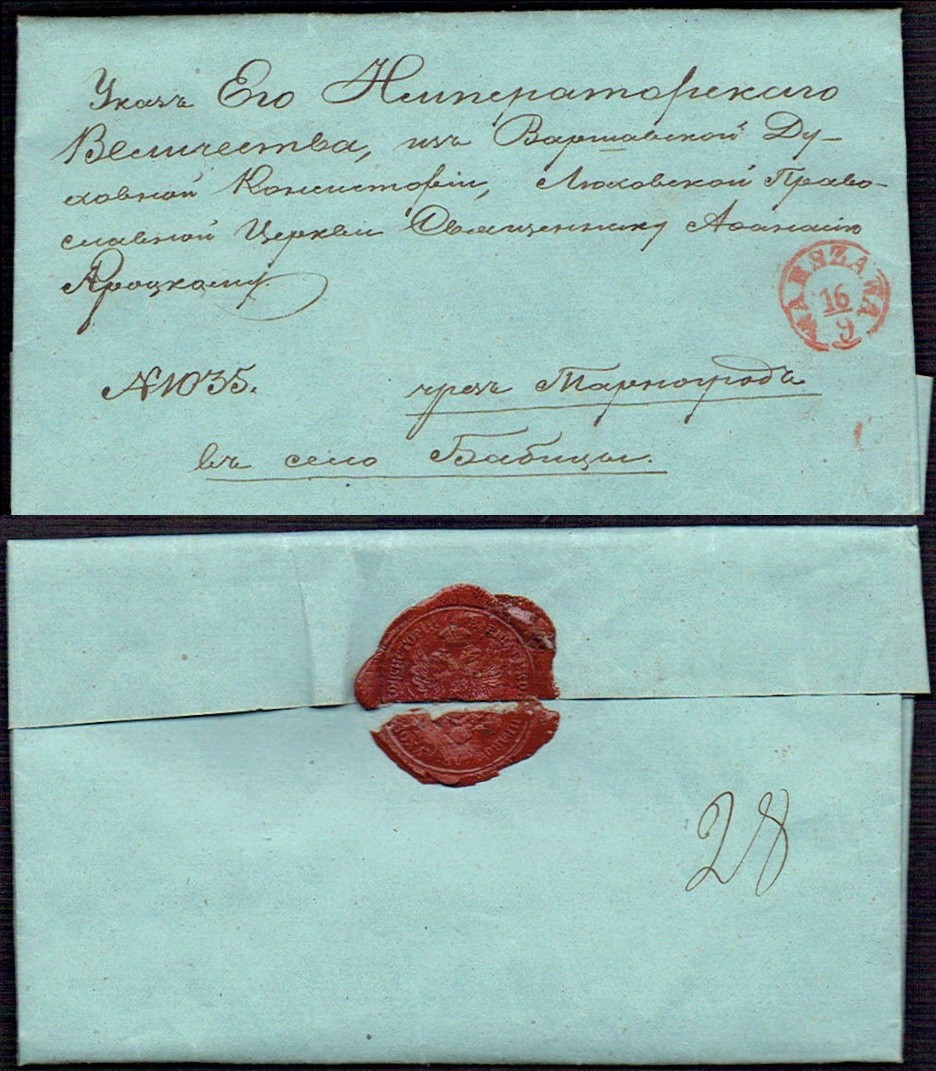 Указъ Его Императорскаго
Величества, изъ Варшавской Ду-
ховной Консисторіи, Люховской Право-
славной Церкви Священнику Афанасію
Яроцкому.
WARSZAWA
16
9
№ 1035.
чрезъ Тарногродъ
въ село Бабицы.
28